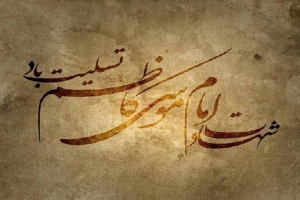 شهادت امام موسی کاظم تسلیت باد